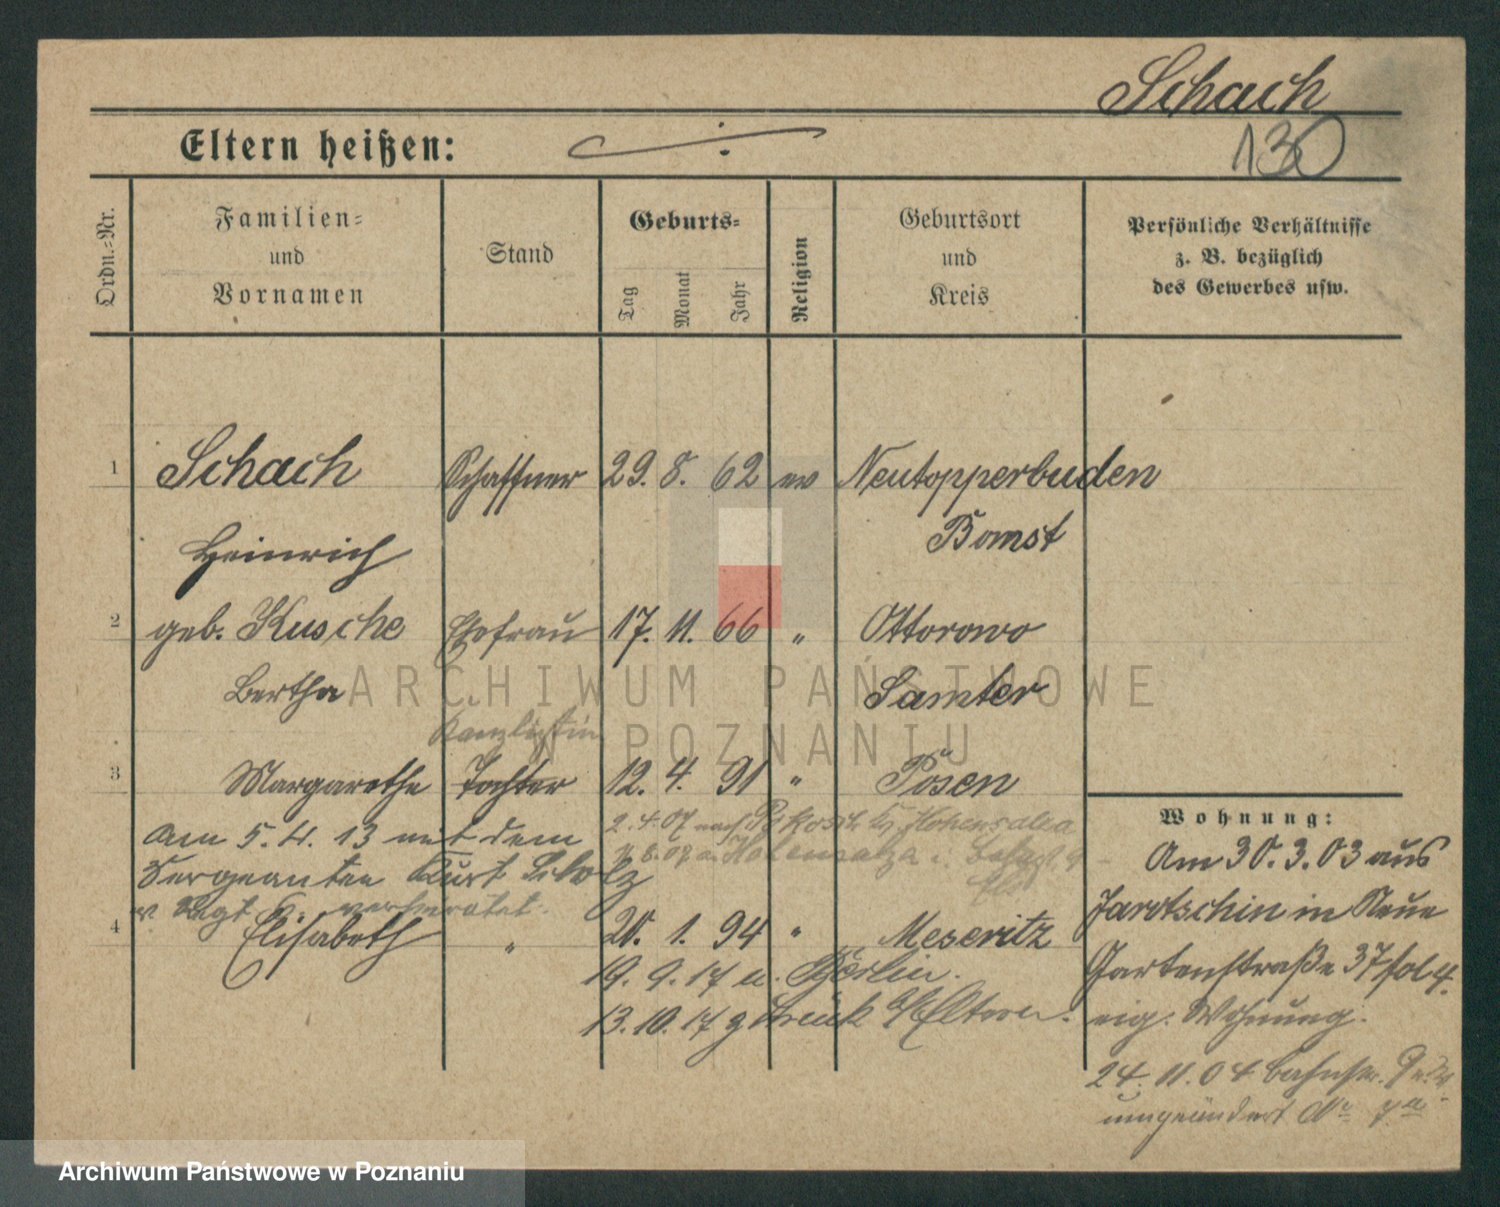 Schach
130
Eltern heißen:
Ordn.=Nr.
Familien=
und
Vornamen
Stand
Geburts=
Tag
Monat
Jahr
Religion
Geburtsort
und
Kreis
Persönliche Verhältnisse
z. B. bezüglich
des Gewerbes usw.
1 Schach Schaffner 29. 8. 62 ev Neutopperbuden
Heinrich Bomst
2 geb. Kusche Ehefrau 17. 11. 66 " Ottorowo
Bertha Samter
Kanzlistin
3 Margarethe Tochter 12. 4. 91 " Posen
2.4.07 nach Hohensalza
Am 5.4.13 mit dem
Sergeanten Kurt
verheiratet.
4 Elisabeth " 20. 1. 94 " Meseritz
19. 9. 17 n. Berlin.
13. 10. 17 zurück Eltern.
Wohnung:
Am 30.3.03 aus
Jarotschin in Neue
Gartenstraße 37
eig. Wohnung.
24. 11. 04
umgeändert
ARCHIWUM PAŃSTWOWE
W POZNANIU
Archiwum Państwowe w Poznaniu